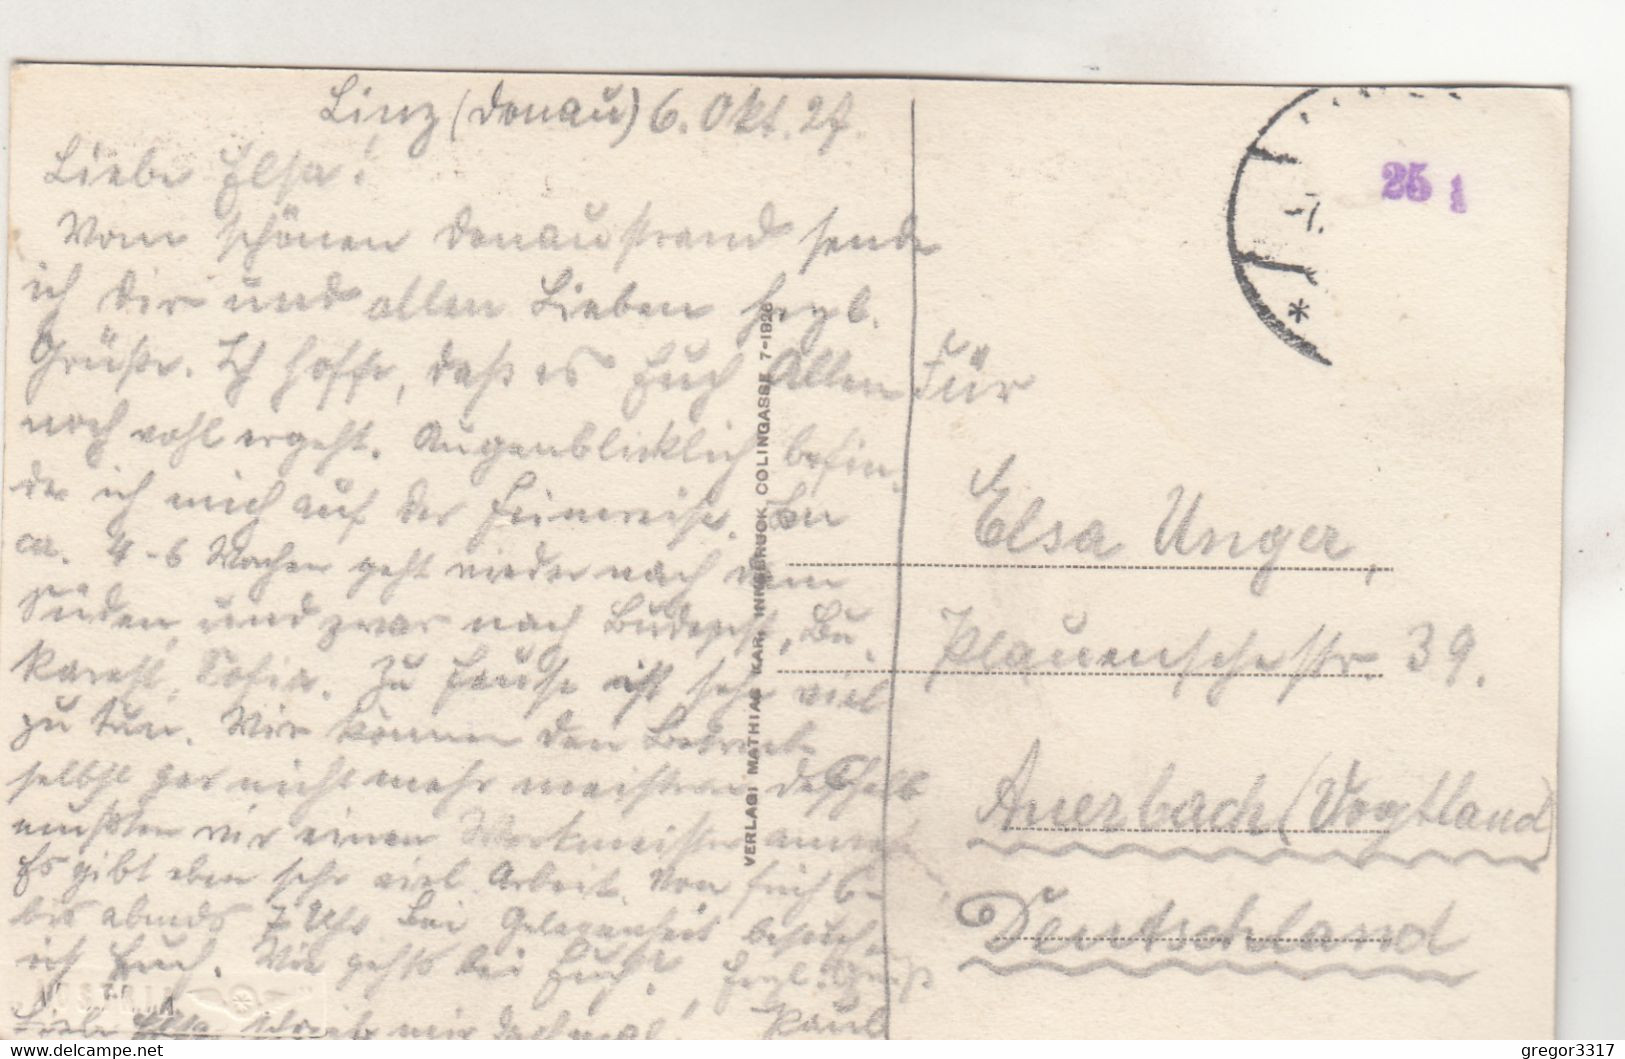 Linz (Donau) 6. Okt. 27.
Liebe Elsa!
Vom schönen Donaustrand sende
ich Dir und allen Lieben herzl.
Grüße. Ich hoffe, daß es Euch Allen
noch wohl ergeht. Augenblicklich befin-
de ich mich auf der Heimreise. In
ca. 4-6 Wochen geht wieder nach dem
Süden, und zwar nach Budapest, Bu-
karest, Sofia. Zu Hause ist sehr viel
zu tun. Wir können den Betrieb
selbst gar nicht mehr meistern deshalb
mußten wir einen Werkmeister
Es gibt eben sehr viel Arbeit. Von früh 6
bis abends 7 Uhr. Bei Gelegenheit besuche
ich Euch. Wie gehts bei Euch? Herzl. Gruß
Liebe Elsa schreib mir doch mal. Paul
VERLAG: MATHIAS KAR, INNSBRUCK, COLINGASSE 7-1926
Für
Elsa Unger,
Plauenschestr. 39.
Auerbach (Vogtland)
Deutschland
25 1
-7.
www.delcampe.net
gregor3317